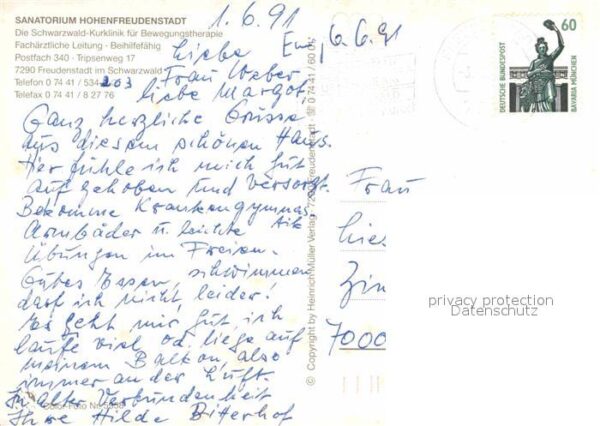 1.6.91
SANATORIUM HOHENFREUDENSTADT
Die Schwarzwald-Kurklinik für Bewegungstherapie
Fachärztliche Leitung · Beihilfefähig
Postfach 340 · Tripsenweg 17
7290 Freudenstadt im Schwarzwald
Telefon 0 74 41 / 534 203
Telefax 0 74 41 / 8 27 76
6.6.91
Liebe
Frau Weber,
liebe Margot,
Ganz herzliche Grüsse
aus diesem schönen Haus.
Hier fühle ich mich gut
aufgehoben und versorgt.
Bekomme Krankengymnas
tik,
Armbäder u. leichte
Übungen im Freien.
Gutes Essen, schwimmen
darf ich nicht, leider!
Es geht mir gut, ich
laufe viel od. liege auf
meinem Balkon, also
immer an der Luft.
In alter Verbundenheit
Ihre Hilde Bitterhof
Color-Foto Nr.
© Copyright by Heinrich Müller Verlag · Freudenstadt
60
DEUTSCHE BUNDESPOST
BAVARIA MÜNCHEN
Frau
7000
privacy protection
Datenschutz